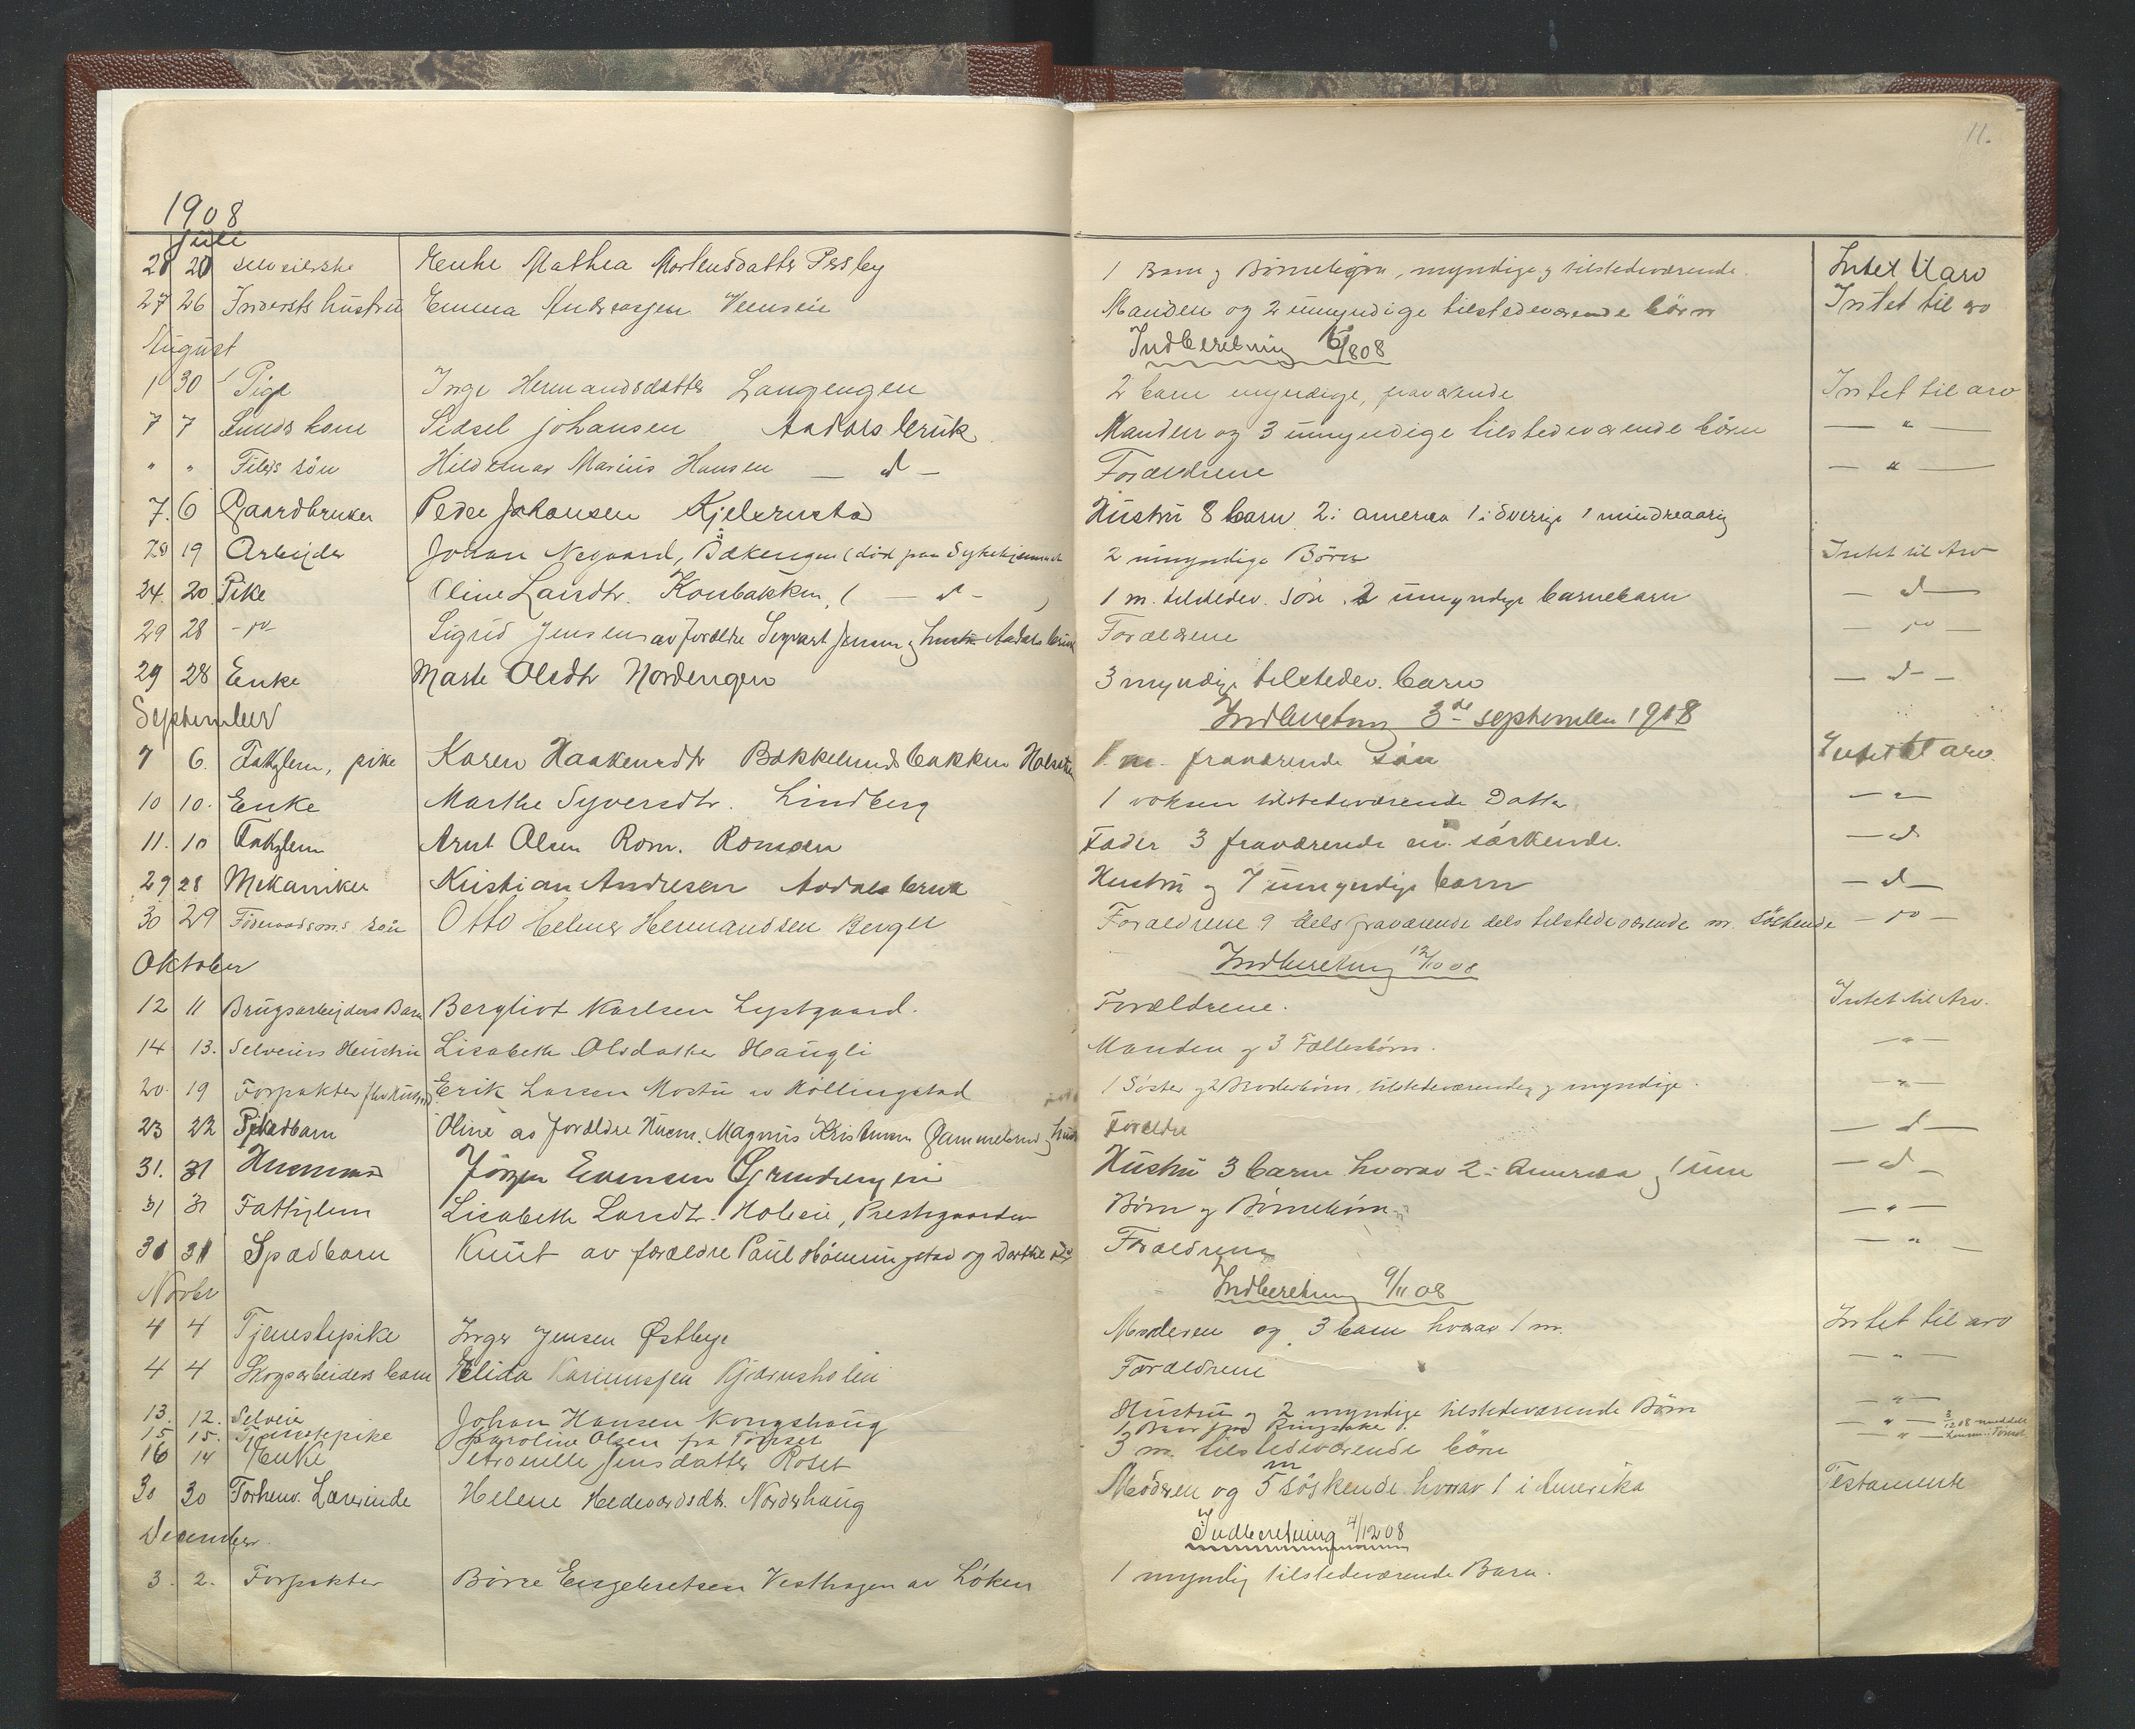 11.
1908
Juli
28 20 Selveierske Enke Mathea Mortensdatter Persby 1 Barn og Børnebørn, myndige og tilstedeværende. Intet til arv
27 26 Indersts hustru Emma Andreassen Manden og 2 umyndige tilstedeværende børn Intet til arv
August Indberetning 6/8 08
1 30 Pige Inge Hermandsdatter Langengen 2 barn myndige, fraværende Intet til arv
7 7 kone Sidsel Johansen Aadalsbruk Manden og 3 umyndige tilstedeværende börn — " —
" " søn Hildemar Marius Hansen — d — Forældrene — " —
7. 6 Gaardbruker Peder Johansen Kjelsrustad Hustru 8 barn 2 i amerika 1 i Sverige 1 mindreaarig
19 Arbeider Johan Negaard, Bækengen (död paa Sykehjemmet 2 umyndige Børn Intet til Arv
24. 20. Pike Oline Larsdtr. Kornbakken, ( — d — ) 1 m. tilstedev. søn, 2 umyndige barnebarn — d —
29 28 — " — Sigrid Jensen av forældre Sigvart Jensen og hustru Aadalsbruk Forældrene — " —
29 28 Enke Marte Olsdtr Nordengen 3 myndige tilstedev. barn — d —
September Indberetning 3de september 1908
7 6. Fattiglem, pike Karen Haakensdtr Bakkelundsbakken 1 m. fraværende søn Intet til arv.
10 10. Enke Marthe Syversdtr. Lindberg 1 voksen tilstedeværende Datter — " —
11. 10 Fattiglem Arnt Olsen Rom. Romsen Fader 3 fraværende søskende. — d —
29 28 Mekaniker Kristian Andresen Aadalsbruk Hustru og 7 umyndige barn — d —
30 29 Föderaadsm.s søn Otto Helmer Hermandsen Berger Forældrene 9 dels fraværende dels tilstedeværende m. søskende — " —
Oktober Indberetning 12/10 08
12 11 Brugsarbeiders Barn Bergliot Karlsen Lystgaard. Forældrene. Intet til Arv.
14 13. Selveiers Hustru Lisabeth Olsdatter Haugli Manden og 3 Fællesbørn. — " —
20. 19 Forpakter Erik Larsen Mostu av Höllingstad 1 Søster og 2 Broderbörn, tilstedeværende og myndige. — " —
23 22 Spædbarn Oline av forældre Husm. Magnus Kristiansen og hustru Forældre — d —
31. 31 Husmand Jörgen Evensen Grundengen Hustru 3 barn hvorav 2 i Amerika og 1 um — d —
31 31 Fattiglem Lisabeth Larsdtr. Holseie, Prestegaarden Børn og Børnebørn — " —
31 31 Spædbarn Knut av forældre Paul Hömmingstad og Dorthe Forældrene — " —
Novbr Indberetning 9/11 08
4 4 Tjenestepike Inger Jensen Østbye Moderen og 3 barn hvorav 1 m. Intet til arv
4 4 Skogsarbeiders barn Elida Forældrene — " —
13. 12. Selveier Johan Hansen Kongshaug Hustru og 2 myndige tilstedeværende Børn — " —
15 15. Tjenestepike Karoline Olsen fra 1 Barn Ringsaker. — " — 3/12 08
16 14 Enke Petronelle Jensdatter Roset 3 m. tilstedeværende børn — " —
30 30 Forhenv. Lærerinde Helene Hedevardsdtr. Norderhaug Moderen og 5 m søskende hvorav 1 i Amerika Testamente
December. Indberetning 4/12 08
3. 2. Forpakter Börre Engebretsen Vesthagen av Løken 1 myndig tilstedeværende Barn.